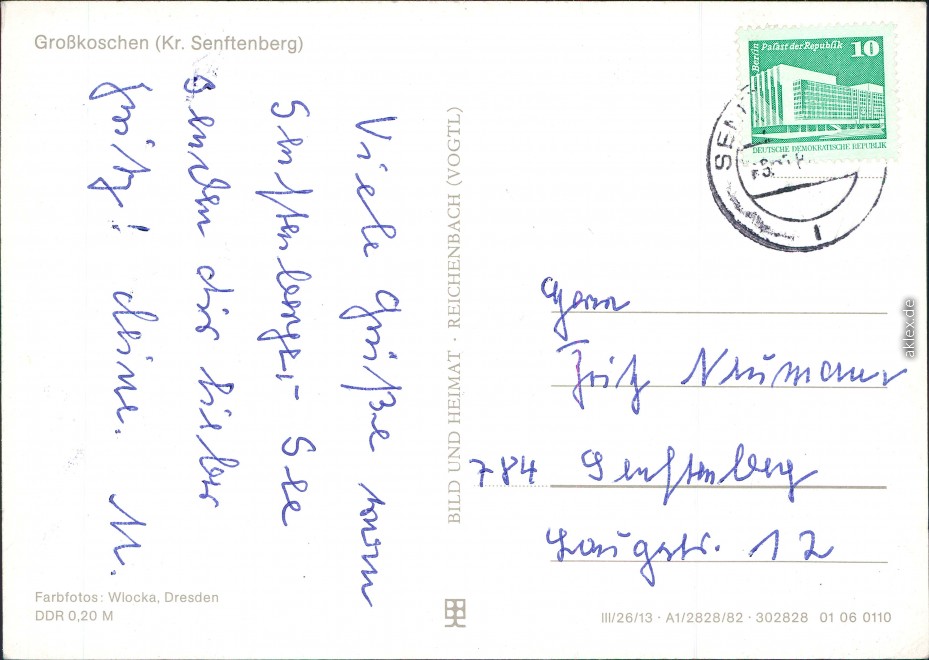 Großkoschen (Kr. Senftenberg)
Viele Grüße vom
Senftenberger See
senden dir lieber
Fritz! deine. M.
Farbfotos: Wlocka, Dresden
DDR 0,20 M
BILD UND HEIMAT · REICHENBACH (VOGTL)
Berlin Palast der Republik 10
DEUTSCHE DEMOKRATISCHE REPUBLIK
SENF
1
Herrn
Fritz Neumann
784 Senftenberg
Laugstr. 12
III/26/13 · A1/2828/82 · 302828 01 06 0110
aklex.de